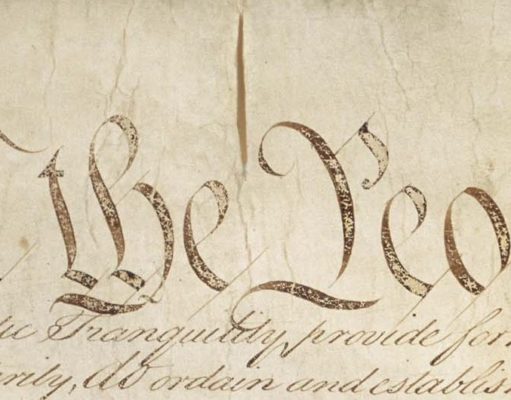 the Peo
ic Tranquility, provide for
urity, do ordain and establis